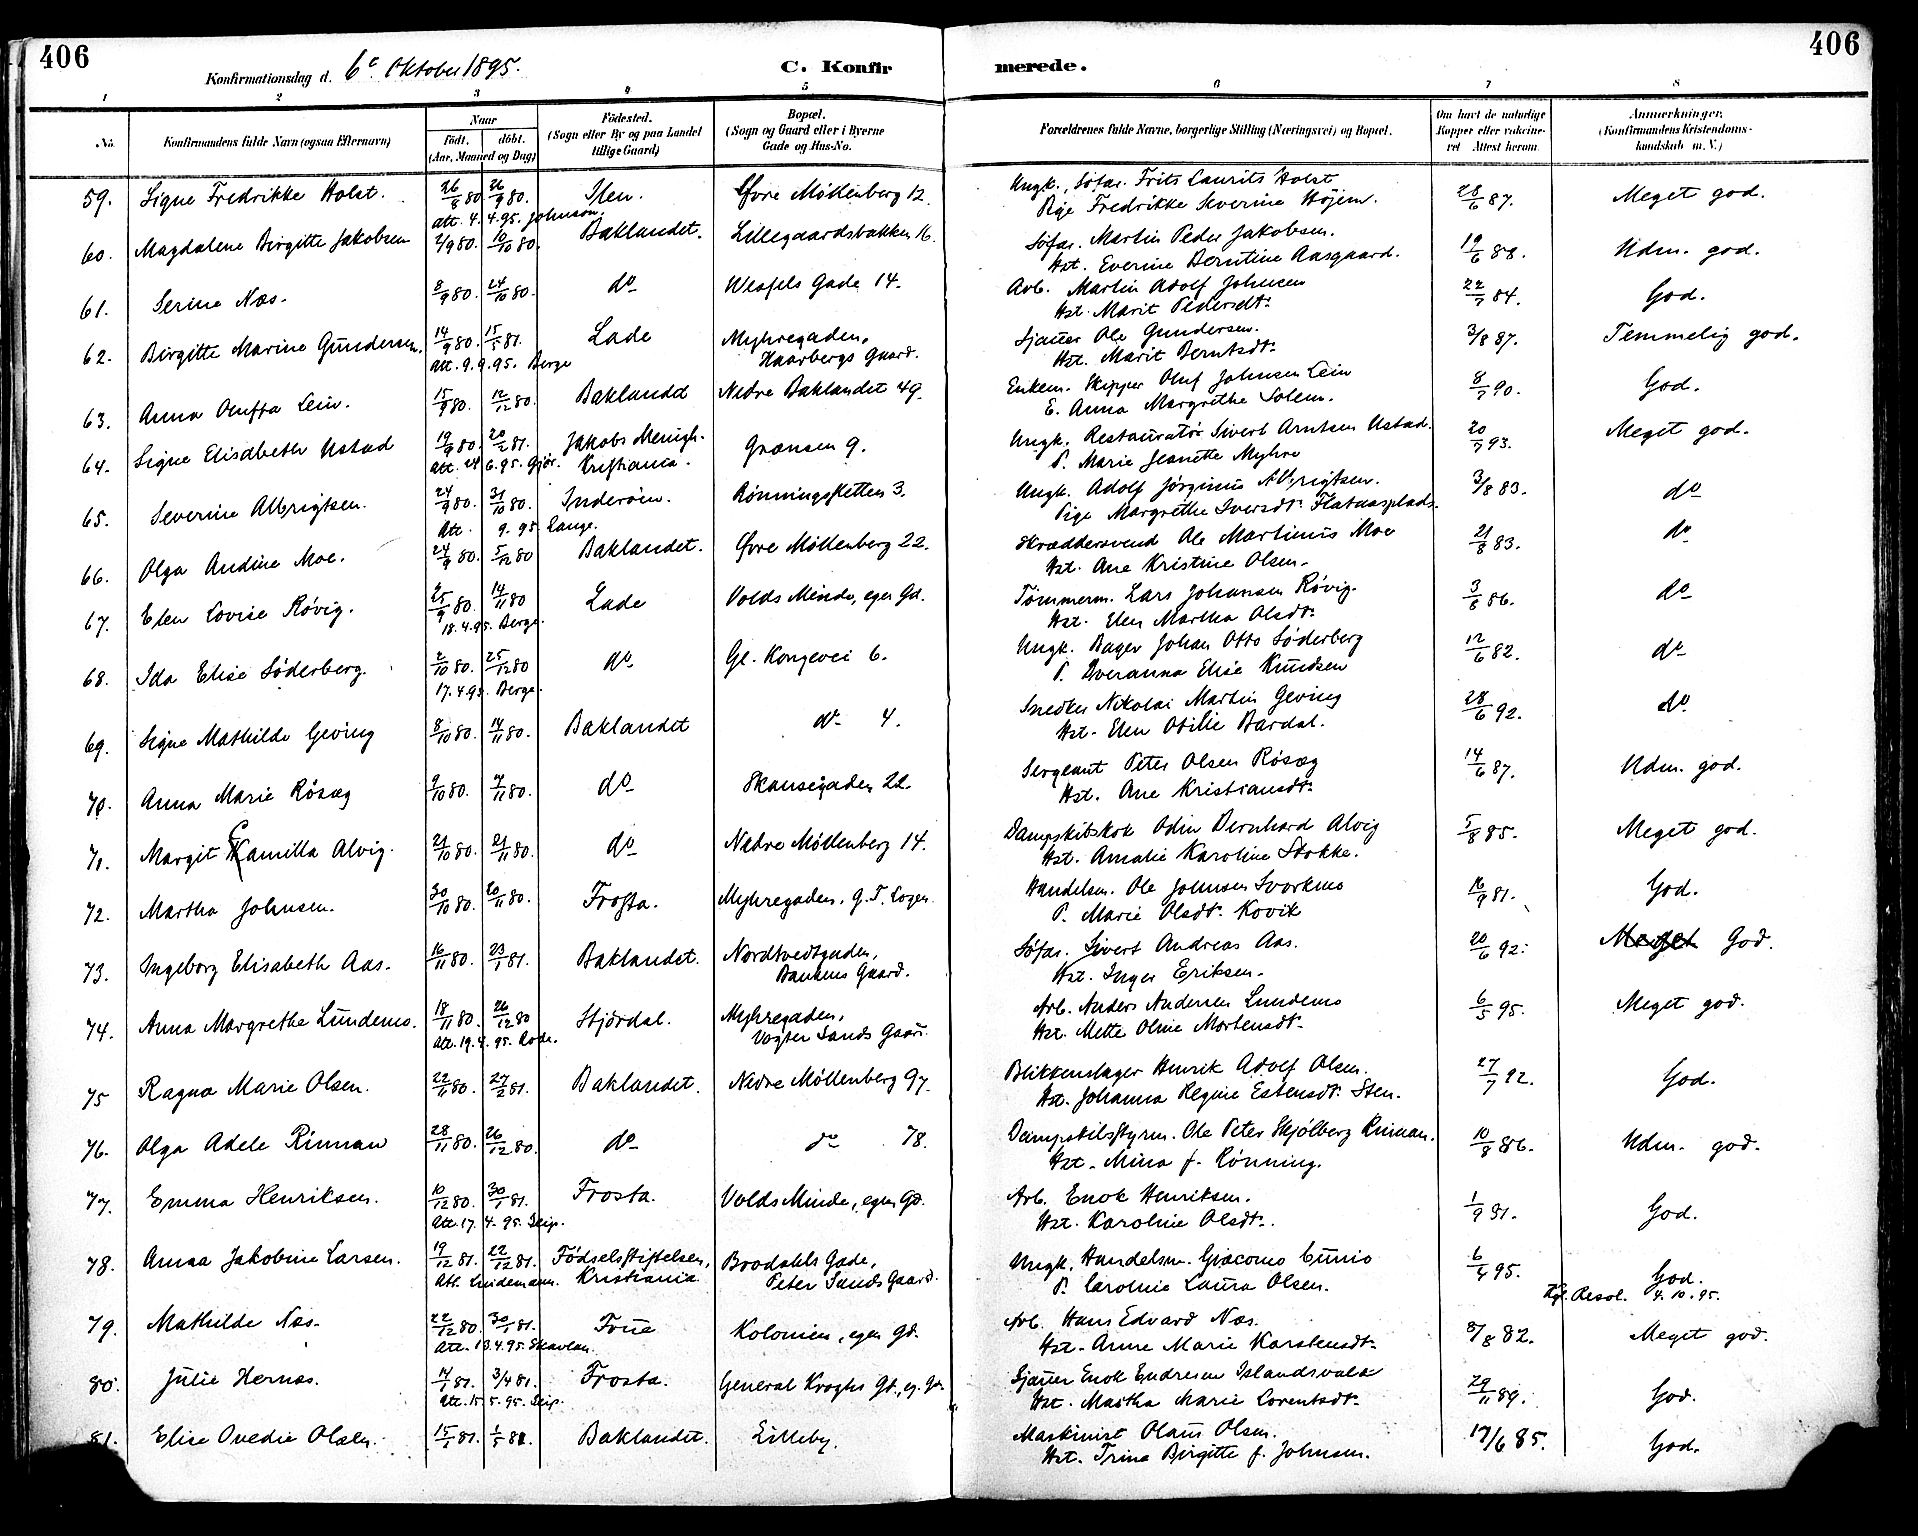 406
Konfirmationsdag d. 6e Oktober 1895.
C. Konfir
merede.
406
1 2 3 4 5 6 7 8
No. Konfirmandens fulde Navn (ogsaa Efternavn) Naar Födt. döbt. (Aar, Maaned og Dag) Födested. (Sogn eller By og paa Landet tillige Gaard) Bopæl. (Sogn og Gaard eller i Byerne Gade og Hus-No. Forældrenes fulde Navne, borgerlige Stilling (Næringsvei) og Bopæl. Om havt de naturlige Kopper eller vakcineret Attest herom Anmærkninger, (Konfirmandens Kristendomskundskab m. V.)
59. Signe Fredrikke Holst. 26/8 80 26/9 80. Ilen. Øvre Møllenberg 12. Ungk., Søfar. Frits Laurits Holst 28/6 87. Meget god.
Att. 4.4.95. Johnson. Pige Fredrikke Severine Højem.
60. Magdalene Birgitte Jakobsen 2/9 80. 10/10 80. Baklandet. Lillegaardsbakken 16. Søfar. Martin Peder Jakobsen. 19/6 88. Udm. god.
Hst. Everine Berntine Aasgaard.
61. Serine Næs. 8/9 80. 24/10 80. do Wessels Gade 14. Arb. Martin Adolf Johnsen 22/7 84. God.
Hst. Marit Pedersdt.
62. Birgitte Marine Gundersen. 14/9 80. 15/5 81. Lade Myhregaden, Sjauer Ole Gundersen. 3/8 87. Temmelig god.
Att. 9.9.95. Berge Haarbergs Gaard. Hst. Marit Berntsdt.
63. Anna Oluffa Lein. 15/9 80. 12/12 80. Baklandet Nedre Baklandet 49. Enkem. Skipper Oluf Johnsen Lein 8/7 90. God.
E. Anna Margrethe Solem.
64. Signe Elisabeth Ustad 19/9 80. 20/2 81. Jakobs Menigh. Grænsen 9. Ungk. Restauratør Sivert Arntsen Ustad. 20/7 93. Meget god.
Att. 24.6.95. Gjør. Kristiania. P. Marie Jeanette Myhre
65. Severine Albrigtsen. 24/9 80. 31/10 80. Inderøen. Rønningsletten 3. Ungk. Adolf Jørginus Albrigtsen. 3/8 83. do
Att. 9.95. Lange. Pige Margrethe Iversdt. Flatnasplads.
66. Olga Andine Moe. 24/9 80. 5/12 80 Baklandet. Øvre Møllenberg 22. Skræddersvend Ole Martinus Moe 21/8 83. do
Hst. Ane Kristine Olsen.
67. Elen Lovise Røvig. 25/9 80. 14/11 80 Lade Volds Minde, egen Gd. Tømmerm. Lars Johansen Røvig. 3/8 86. do
18.4.95. Berge. Hst. Elen Martha Olsdt.
68. Ida Elise Søderberg. 2/10 80. 25/12 80 do Gl. Kongevei 6. Ungk. Bager Johan Otto Søderberg 12/6 82. do
17.4.95. Berge. P. Overanna Elise Knudsen
69. Signe Mathilde Geving 8/10 80. 14/11 80. Baklandet do 4. Snedker Nikolai Martin Geving 28/6 92. do
Hst. Elen Otilie Bardal.
70. Anna Marie Røsæg 9/10 80. 7/11 80. do Skansegaden 22. Sergeant Peter Olsen Røsæg 14/6 87. Udm. god.
Hst. Ane Kristiansdt.
71. Margit Camilla Alvig. 21/10 80. 21/11 80. do Nedre Møllenberg 14. Dampskibskok Odin Bernhard Alvig 5/8 85. Meget god.
Hst. Amalie Karoline Stokke.
72. Martha Johnsen. 30/10 80. 20/11 80. Frosta. Myhregaden, G. T. Logen Handelsm. Ole Johnsen Svorkmo 16/9 81. God.
P. Marie Olsdt. Kovik
73. Ingeborg Elisabeth Aas. 16/11 80. 23/1 81. Baklandet. Nordtvedtgaden, Søfar. Sivert Andreas Aas. 20/6 92. Meget God.
Bankens Gaard. Hst. Inger Eriksen.
74. Anna Margrethe Lundemo. 18/11 80. 26/12 80 Stjørdal. Myhregaden, Arb. Anders Andersen Lundemo 6/5 95. Meget god.
Att. 19.4.95. Rode. Vogter Sands Gaard. Hst. Mette Oline Mortensdt.
75 Ragna Marie Olsen. 22/11 80. 27/2 81. Baklandet. Nedre Møllenberg 97. Blikkenslager Henrik Adolf Olsen. 27/7 92. God.
Hst. Johanna Regine Estensdt. Sten.
76. Olga Adele Rinnan 28/11 80. 26/12 80. do do 78. Dampskibsstyrm. Ole Peter Skjølberg Rinnan. 10/8 86. Udm. god.
Hst. Mina f. Rønning.
77. Emma Henriksen. 10/12 80. 30/1 81. Frosta. Volds Minde, egen Gd. Arb. Enok Henriksen. 1/9 91. God.
Att. 17.4.95. Skip. Hst. Karoline Olsdt.
78. Anna Jakobine Larsen. 19/12 81. 22/12 81. Fødselsstiftelsen, Brodahls Gade, Ungk. Handelsm. Giacomo Cunio 6/4 95. God.
Att. Lindemann. Kristiania Peter Sands Gaard. P. Caroline Laura Olsen. Kgl. Resol. 4.10.95.
79. Mathilde Næs. 22/12 80. 30/1 81. Kolonien, egen Gd. Arb. Hans Edvard Næs. 8/8 82. Meget god.
Att. 13.4.95. Skavlan. Hst. Anne Marie Karstensdt.
80. Julie Hernæs. 14/1 81. 3/4 81. Frosta. General Kroghs Gd., eg. Gd. Sjauer Enok Endresen Islandsvald 29/11 89. God.
Att. 15.5.95. Skip. Hst. Martha Marie Lorentsdt.
81. Elise Ovedie Olsen. 15/1 81. 1/5 81. Baklandet. Lilleby. Maskinist Olaus Olsen. 17/6 85. God.
Hst. Trina Birgitte f. Johnsen.